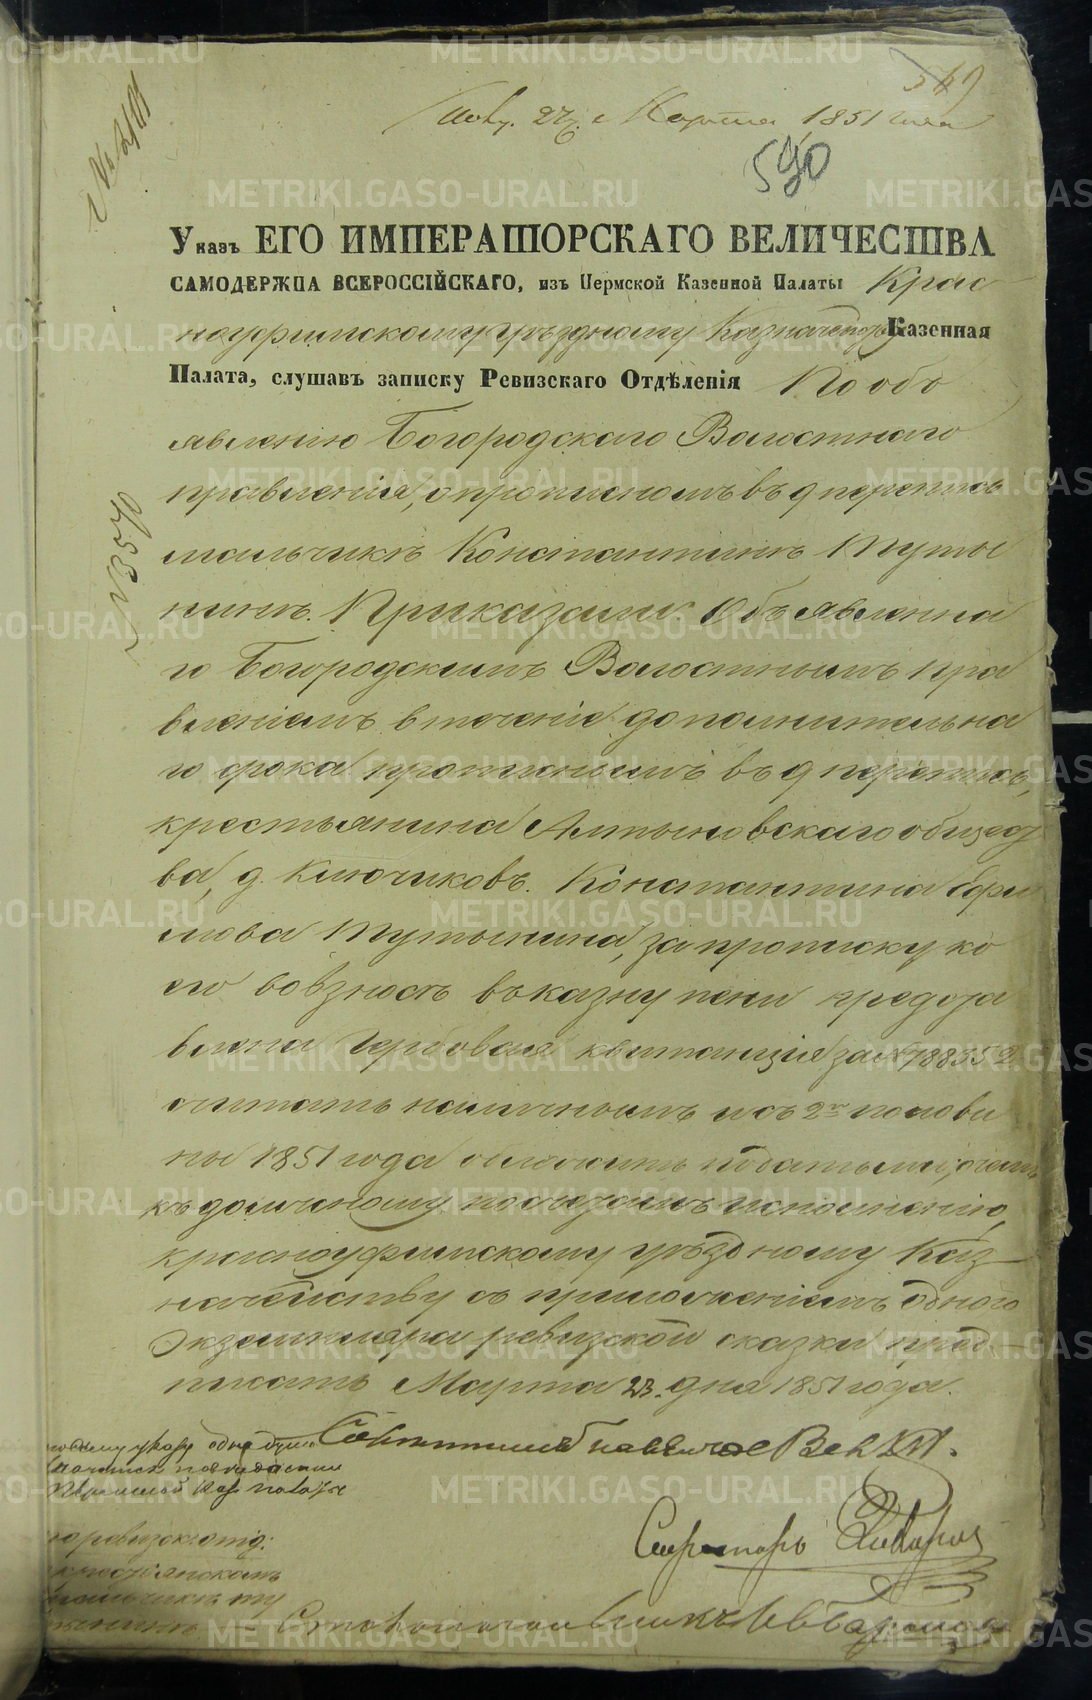 569
27 Марта 1851 года
590
Указъ ЕГО ИМПЕРАТОРСКАГО ВЕЛИЧЕСТВА
САМОДЕРЖЦА ВСЕРОССІЙСКАГО, изъ Пермской Казенной Палаты Крас
ноуфимскому Уѣздному Казначейству Казенная
Палата, слушавъ записку Ревизскаго Отдѣленія По объ
явленію Богородского Волостнаго
правленія, о прописномъ въ 9 перепись
мальчикѣ Константинѣ Туты
нинѣ. Приказали: Объявленна
го Богородскимъ Волостнымъ пра
вленіемъ в теченіе дополнительна
го срока прописнымъ въ 9 перепись,
крестьянина Алтыновскаго общест
ва, д. Ключиковъ Константина Ефи
мова Тутынина, за прописку ко
его вовзносъ въ казну пени предста
влена Гербовая квитанція за № 78855
считать наличнымъ и съ 2й полови
ны 1851 года обложить податьми, о чемъ
къ должному по счетамъ исполненію,
красноуфимскому уѣздному Каз
начейству съ приложеніемъ одного
экземпляра ревизской сказки пред
писать Марта 23 дня 1851 года.
Секретарь
по ревизск: отд:
крестьянскомъ
мальчикѣ Ту
тынинѣ
Столоначальникъ
METRIKI.GASO-URAL.RU